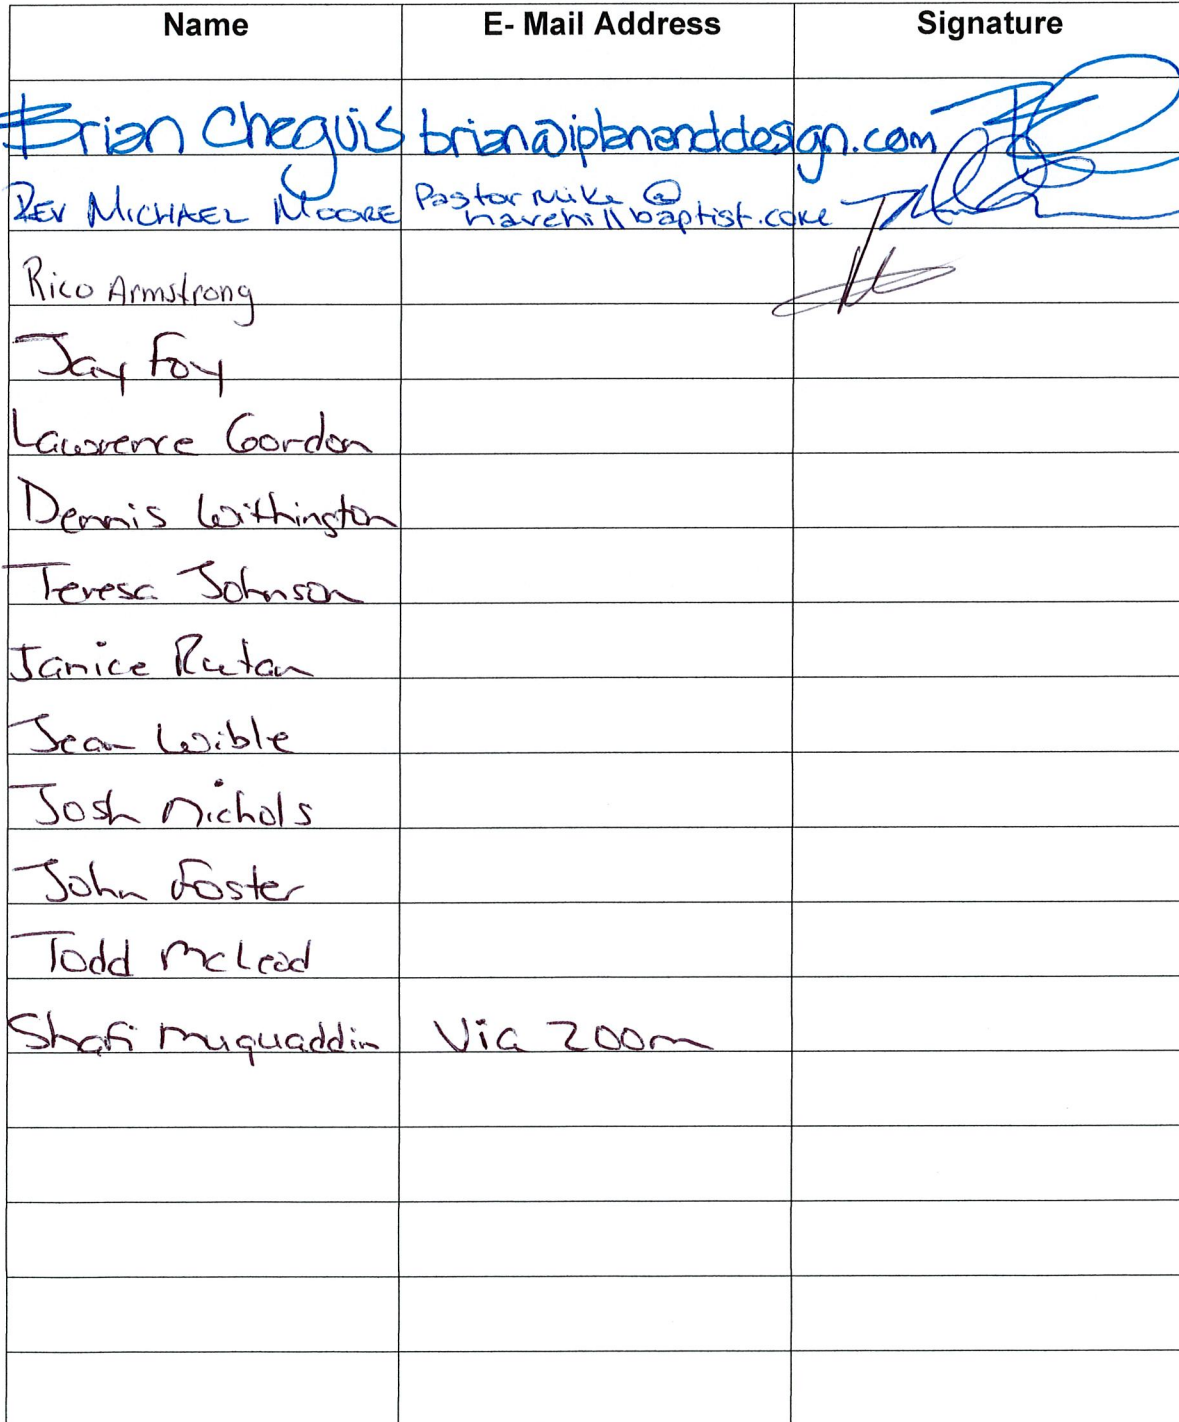 Name E- Mail Address Signature
Brian Cheguis brian@iplananddesign.com
REV MICHAEL MOORE Pastor Mike @
havehillbaptist.com
Rico Armstrong
Jay Foy
Lawrence Gordon
Dennis Withington
Teresa Johnson
Janice Rutan
Jean Wible
Josh Nichols
John Foster
Todd McLeod
Shafi Muquaddin Via Zoom